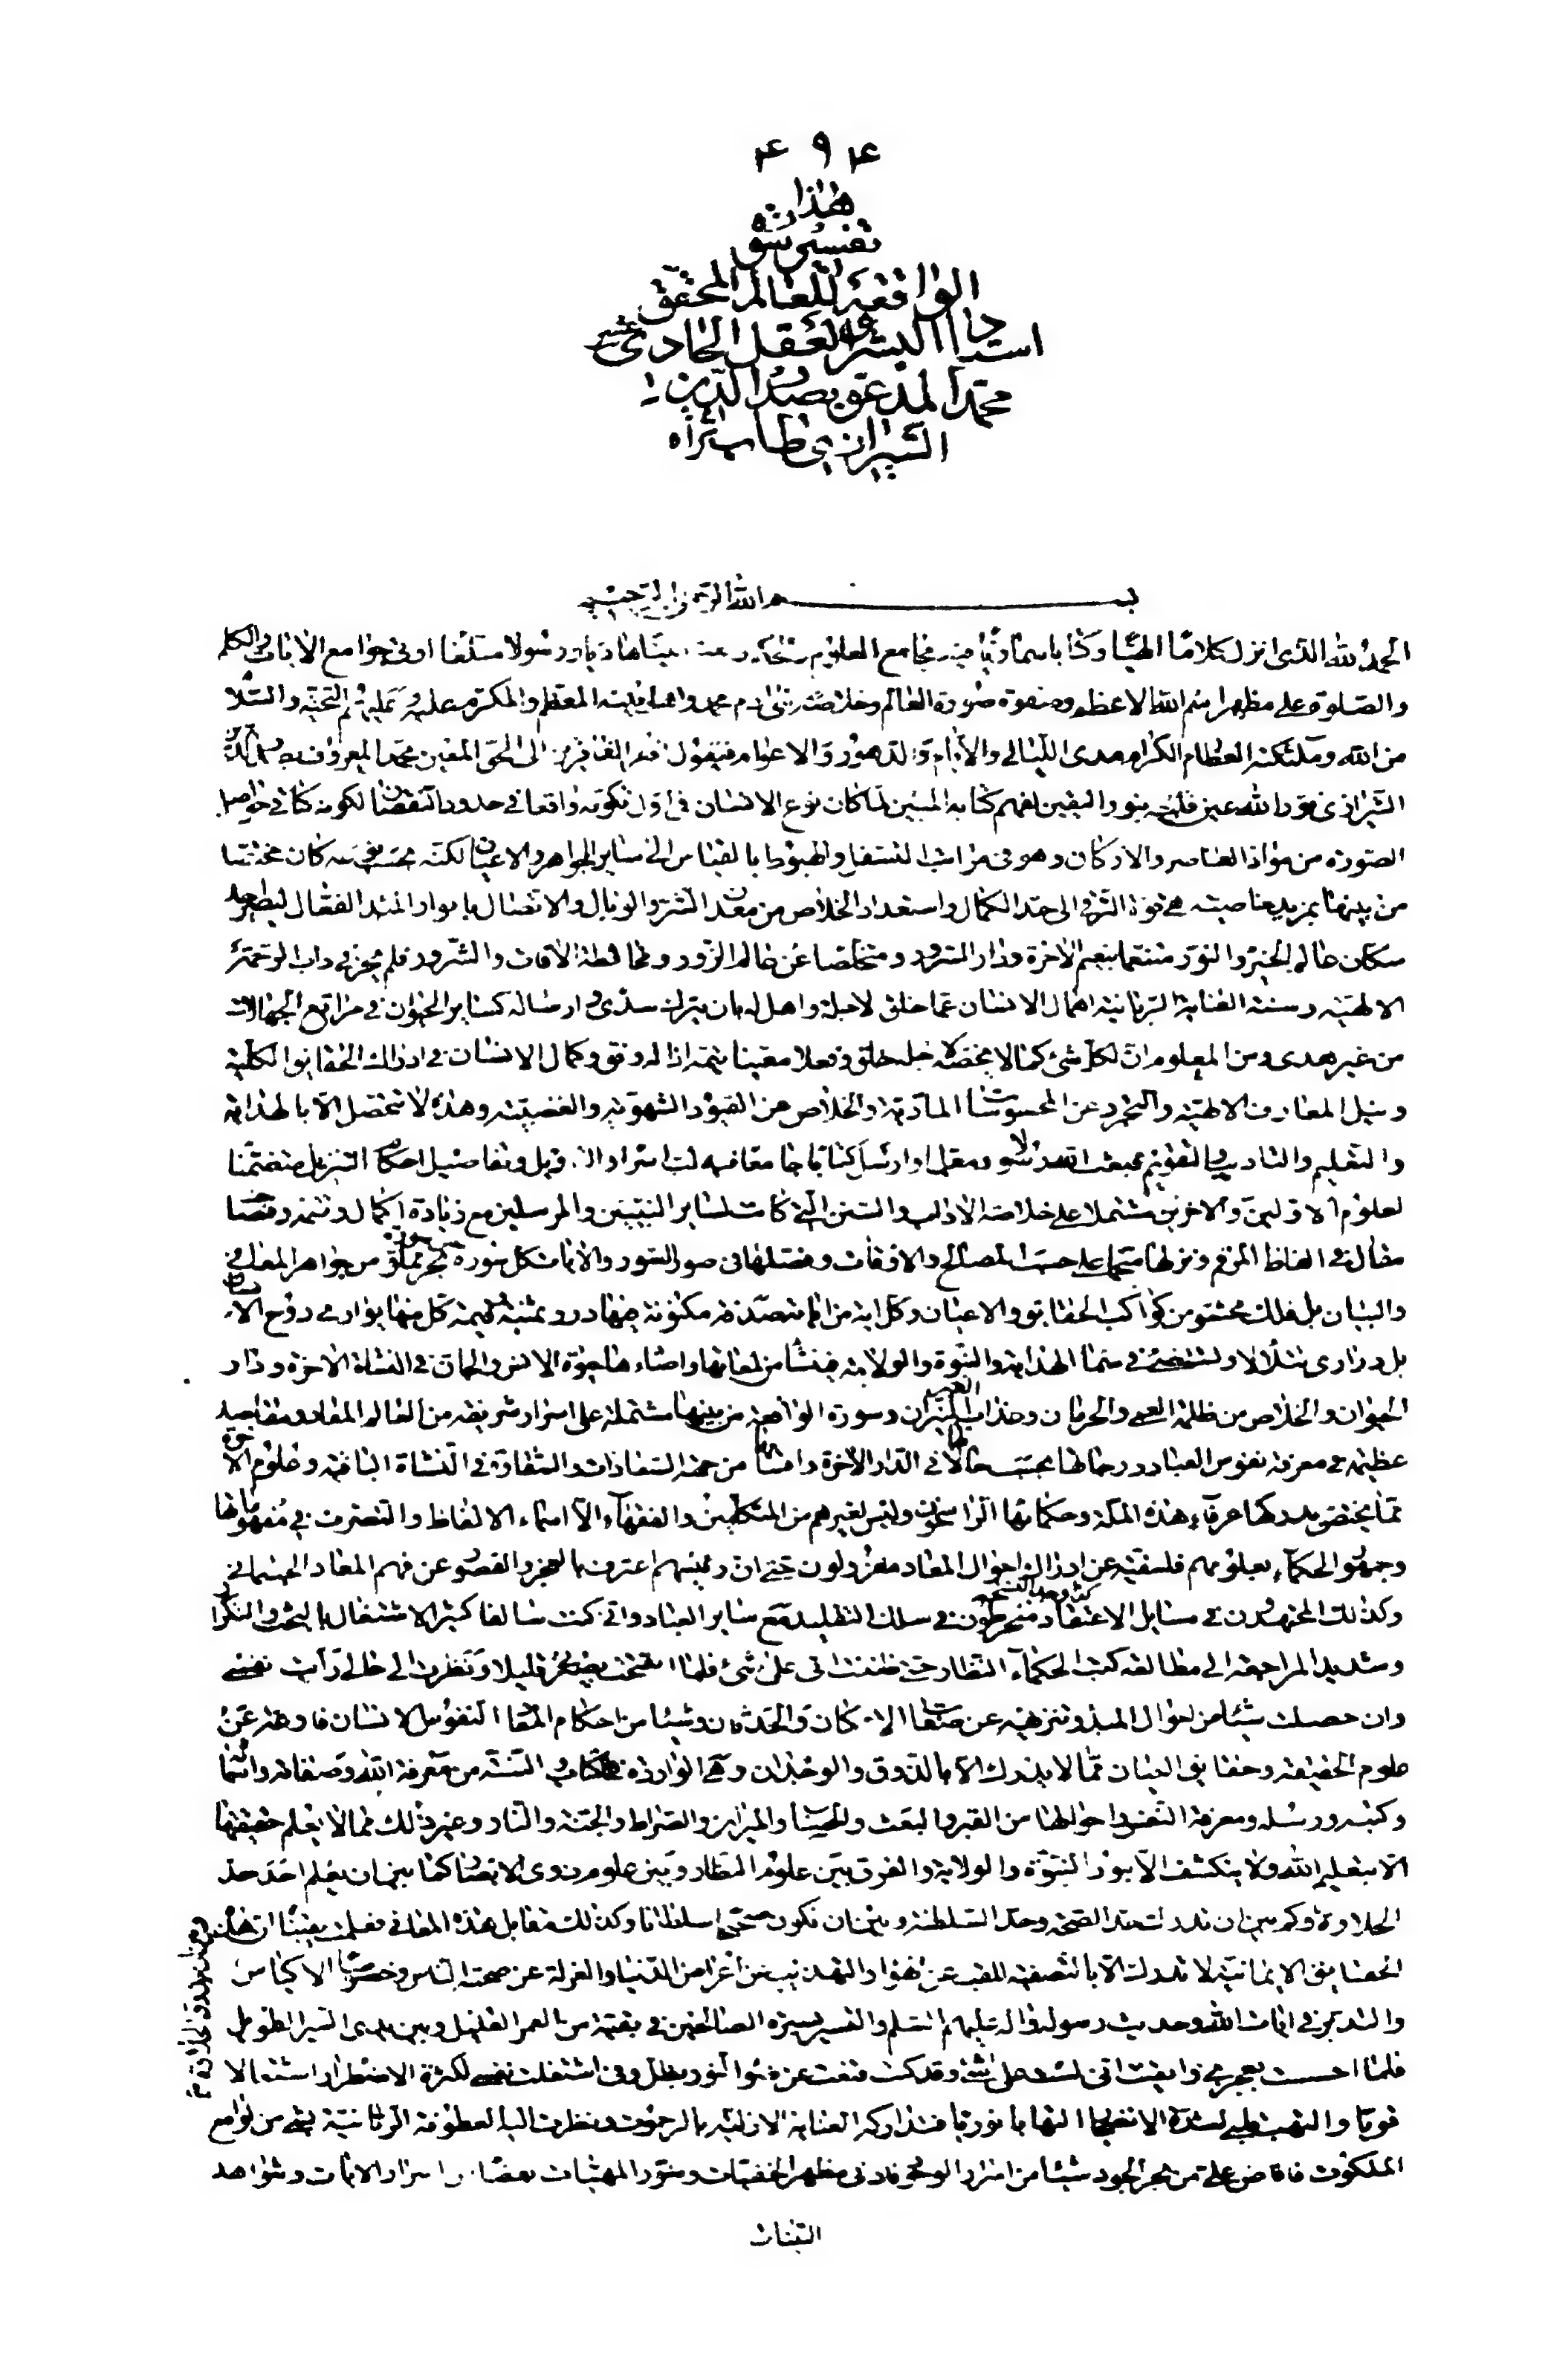 ۴ ۹ ۴
هذا
تفسیر سورة
الواقعة للعالم المحقق
استاد البشر والعقل الحادی عشر
محمد المدعو بصدر الدین
الشیرازی طاب ثراه
بسم الله الرحمن الرحیم
الحمد لله الذی انزل کلاما الهیا وکتابا سماویا فیه مجامع العلوم ورسولا مبلغا اوتی جوامع الایات والکلم
والصلوة علی مظهر اسم الله الاعظم وصفوة صورة العالم وخلاصة بنی ادم محمد واهل بیته المعظم والمکرم علیه وعلیهم التحیة والسلا
من الله وملئکته العظام الکرام مدی اللیالی والایام والدهور والاعوام فیقول افقر الفقراء الی الحق المغین محمد المعروف بصدر الدین
الشیرازی نور الله عین قلبه بنور الیقین لفهم کتابه المبین لما کان نوع الانسان فی اول تکونه واقعا فی حدود النقصان لکونه کائنا حاصل
الصورة من مواد العناصر والارکان وهو فی مراتب التسفل والهبوط بالقیاس الی سایر الجواهر والاعیان لکنه بحسب کان مختصا
من بینها بمزید خاصیة هی قوة الترقی الی حد الکمال واستعداد الخلاص من معدن الشر والوبال والاتصال بانوار المبدء الفعال لیصیر
سکان عالم الخیر والنور متنعما بنعیم الاخرة ودار السرور ومتخلصا عن عالم الزور ومخالطة الافات والشرور فلم یجز فی داب الرحمة
الالهیة وسنة العنایة الربانیة اهمال الانسان عما خلق لاجله واهل له بان یترک سدی وارساله کسایر الحیوان فی مراتع الجهالات
من غیر هدی ومن المعلوم ان لکل شئ کمالا یخصه لاجله خلق وفعلا معینا یتمه اذا له وفق وکمال الانسان فی ادراک الحقایق الکلیة
ونیل المعارف الالهیة والتجرد عن المحسوسات المادیة والخلاص من القیود الشهویة والغضبیة وهذه لا تحصل الا بالهدایة
والتعلیم والتادیب والتقویم فبعث الله رسولا معلما وارسل کتابا جامعا فیه لب اسرار وتفاصیل احکام التنزیل متضمنا
لعلوم الاولین والاخرین مشتملا علی خلاصة الاداب والسنن التی کانت لسایر النبیین والمرسلین مع زیادة اکمال وتتمیم
فی الفاظ ونزلها منجما علی حسب المصالح والاوقات وفصلها فی صور السور والایات کل سورة بحر مملو من جواهر المعانی
والبیان بل فلک محشو من کواکب الحقایق والاعیان وکل ایة منها صدفة مکنونة فیها درر ثمینة قیمة کل منها روح الانسان
بل دراری تتلالا وتستضئ فی سماء الهدایة والنبوة والولایة منشا من لمعانها واضاءها حیوة الانس والجان فی النشاة الاخرة ودار
الحیوان والخلاص من ظلمة العمی والحرمان وعذاب النیران وسورة الواقعة من بینها مشتملة علی اسرار شریفة من العالم المعاد ومقاصد
عظیمة فی معرفة نفوس العباد ودرجاتها بحسب حالاتها فی الدار الاخرة وامتیازها من جهة السعادات والشقاوة فی النشاة الباقیة وعلوم الاخرة
مما یختص بدرکها عرفاء هذه الملة وحکمائها الراسخون ولیس لغیرهم من المتکلمین والفقهاء الا اسماء الالفاظ والتصرف فی مفهوماتها
وجمهور الحکماء بعلومهم فلسفیة عن ادراک احوال المعاد معزولون حتی ان رئیسهم اعترف بالعجز والقصور عن فهم المعاد الجسمانی
وکذلک المجتهدون فی مسایل الاعتقاد منخرطون فی سلک التقلید مع سایر العباد وانی کنت سالفا کثیر الاشتغال بالبحث والتکرار
وشدید المراجعة الی مطالعة کتب الحکماء النظار حتی ظننت انی علی شئ فلما انفتحت بصیرتی قلیلا ونظرت الی حالی رایت نفسی
وان حصلت شیئا من احوال المبدء وتنزیهه عن صفات الامکان والحدثان وشیئا من احکام المعاد لنفوس الانسان فارغة من
علوم الحقیقة وحقایق العیان مما لا یدرک الا بالذوق والوجدان وهی الواردة فی الکتاب والسنة من معرفة الله وصفاته واسمائه
وکتبه ورسله ومعرفة النفس واحوالها من القبر والبعث والحساب والمیزان والصراط والجنة والنار وغیر ذلک مما لا یعلم حقیقتها
الا بتعلیم الله ولا ینکشف الا بنور النبوة والولایة والفرق بین علوم النظار وبین علوم ذوی الابصار کما بین ان یعلم احد حد
الحلاوة وکم بین ان تدرک حد الصحة وحد السلطنة وبین ان تکون صحیحا سلطانا وکذلک مقابل هذه المعانی فعلمت یقینا ان هذه
الحقایق الایمانیة لا تدرک الا بالتصفیة للقلب عن الهوی والتهذیب عن اغراض الدنیا والعزلة عن صحبة الناس وخصوصا الاکیاس
والتدبر فی ایات الله وحدیث رسوله واله علیهم السلام والتسیر بسیرة الصالحین فی بقیة من العمر القلیل وبین یدی السیر الطویل
فلما احسست بعجزی وایقنت انی لست علی شئ وقد کنت قنعت عن ضوء النور بظل وفئ اشتعلت نفسی لکثرة الاضطرار اشتعالا
قویا والتهب قلبی لشدة الانضجار التهابا نوریا فتدارکه العنایة الازلیة بالرحموت ونظرت الیه العطوفة الربانیة بشئ من لوامع
الملکوت فافاض علی من بحر الجود شیئا من اسرار الوجود وافادنی مظهر الخفیات ومنور المهیات بعضا من اسرار الایات وشواهد
البینات